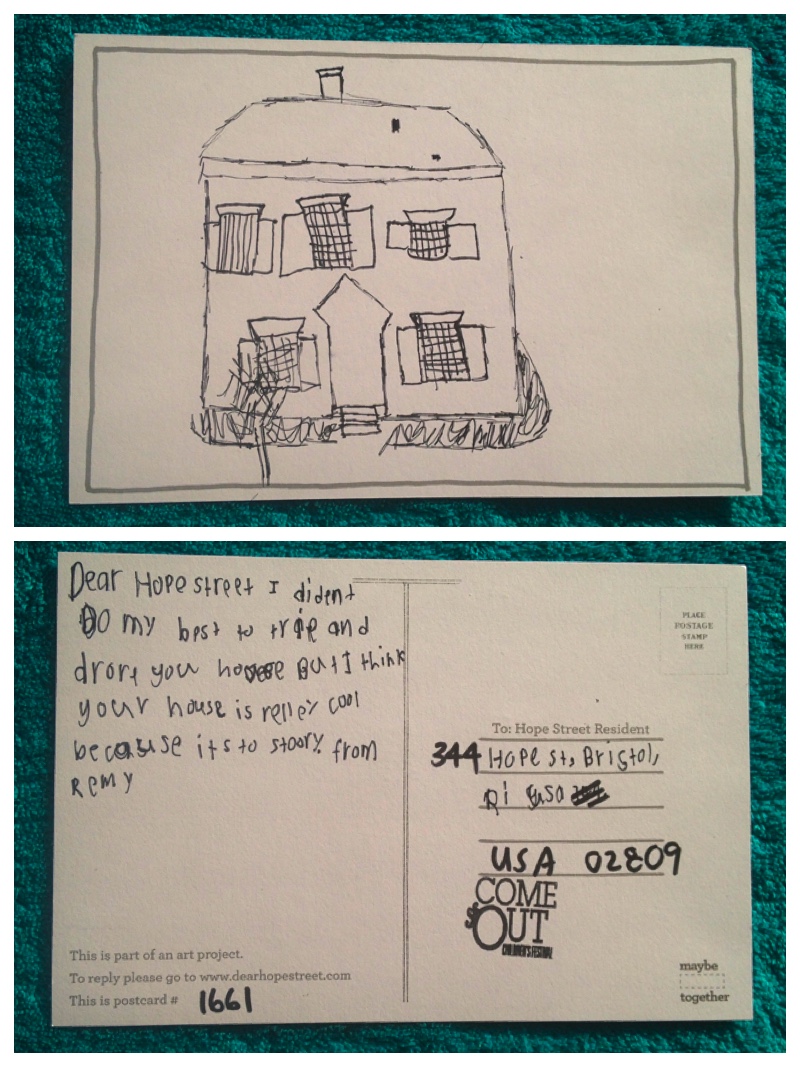 Dear Hope street I dident
DO my best to trie and
drore you house But I think
your house is relley cool
because its to stoory from
Remy
This is part of an art project.
To reply please go to www.dearhopestreet.com
This is postcard # 1661
PLACE
POSTAGE
STAMP
HERE
To: Hope Street Resident
344 Hope st, Bristol,
Ri usa
USA 02809
COME
OUT
CHILDREN'S FESTIVAL
maybe
together